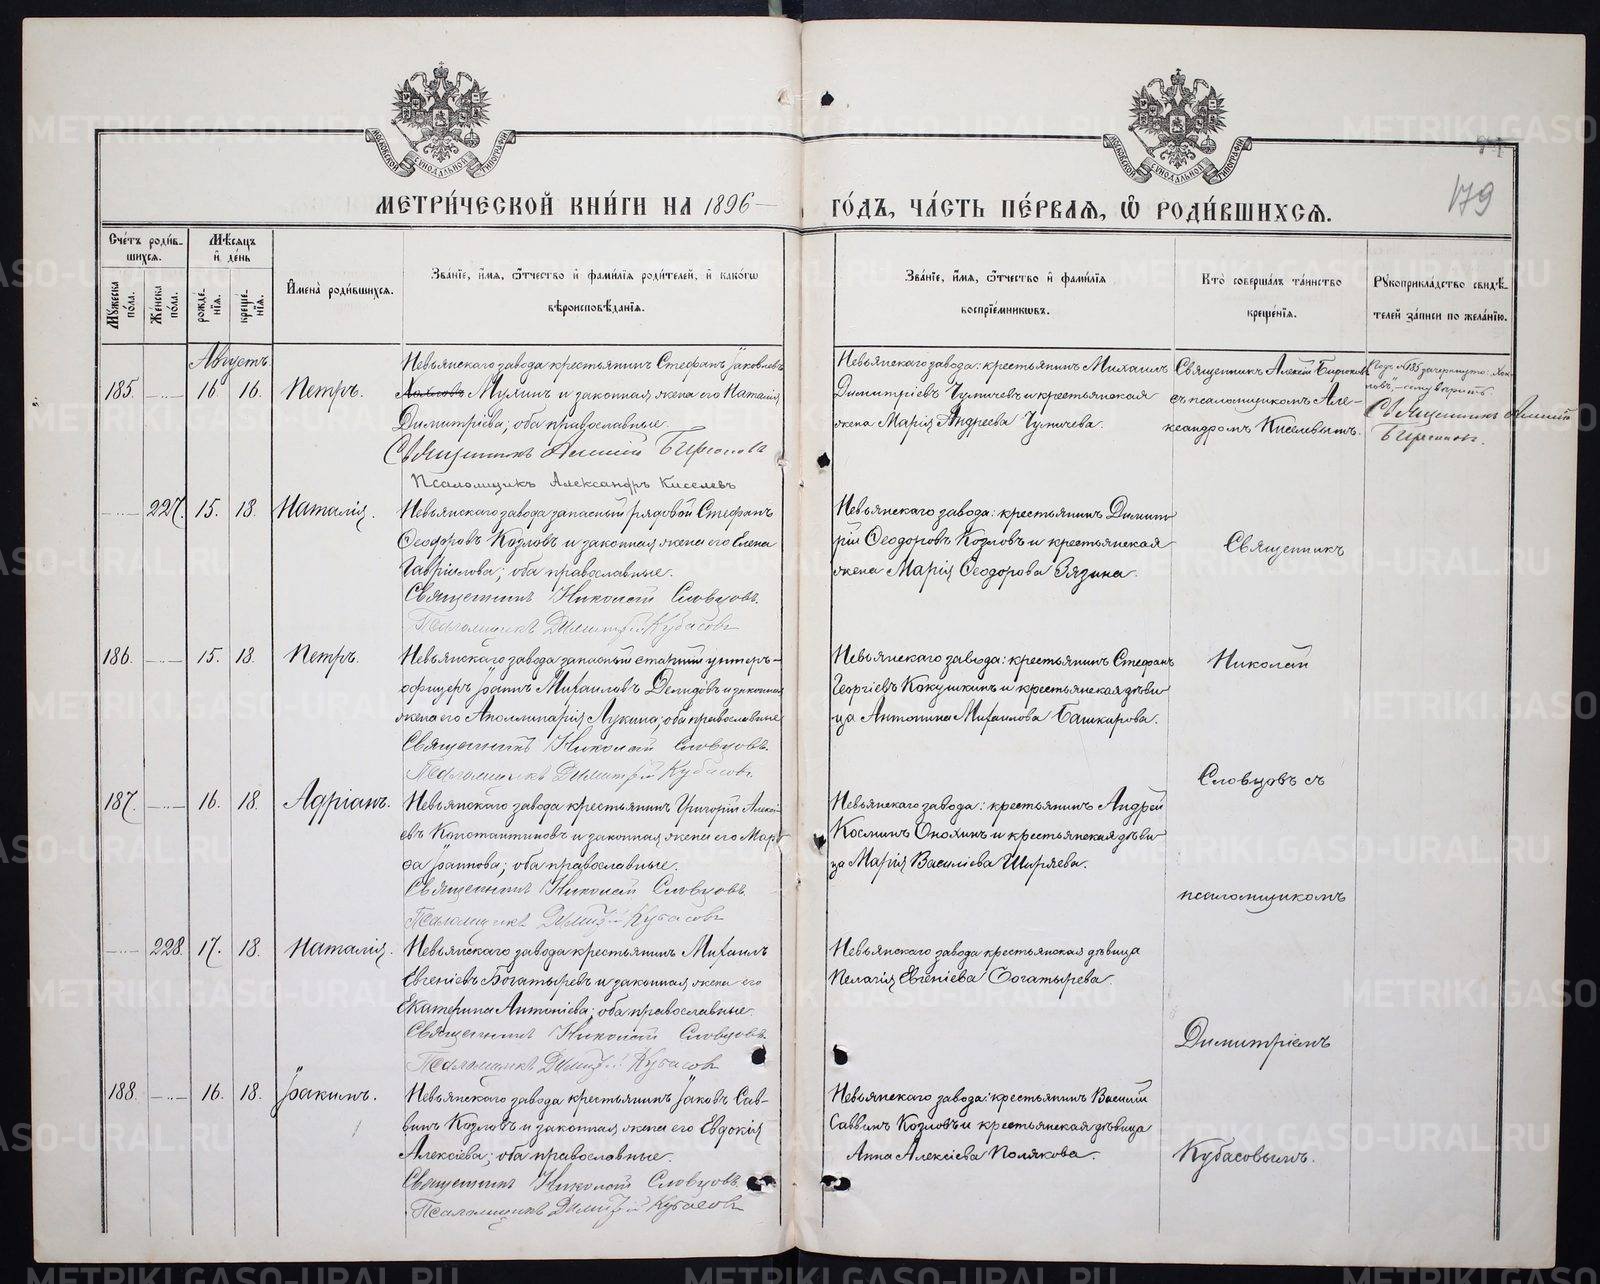 МОСКОВСКОЙ СѴНОДАЛЬНОЙ ТИПОГРАФІИ
МОСКОВСКОЙ СѴНОДАЛЬНОЙ ТИПОГРАФІИ
МЕТРИ́ЧЕСКОЙ КНИ́ГИ НА 1896 –
ГО́ДЪ, ЧА́СТЬ ПЕ́РВАЯ, Ѡ҆ РОДИ́ВШИХСЯ.
179
Сче́тъ роди́в-
шихся.
Мѣ́сяцъ
и҆ де́нь
Мꙋ́жеска
по́ла.
Же́нска
по́ла.
рожде́-
нїя.
креще́-
нїя.
И҆мена̀ роди́вшихся.
Зва́нїе, и҆́мя, ѻ҆́тчество и҆ фами́лїя роди́телей, и҆ како́гѡ
вѣроисповѣ́данїя.
Зва́нїе, и҆́мя, ѻ҆́тчество и҆ фами́лїя
воспрїе́мникѡвъ.
Кто̀ соверша́лъ та́инство
креще́нїя.
Рꙋкоприкла́дство свидѣ́-
телей за́писи по жела́нїю.
Августъ
185. 16 16. Петръ.
Невьянскаго завода крестьянинъ Стефанъ Іаковлевъ
Хохловъ Мухинъ и законная жена его Наталія
Димитріева; оба православные.
Священникъ Алексій Бирюковъ
Псаломщикъ Александръ Киселевъ
Невьянскаго завода: крестьянинъ Михаилъ
Димитріевъ Чумичевъ и крестьянская
жена Марія Андреева Чумичева.
Священникъ Алексій Бирюковъ
съ псаломщикомъ Але-
ксандромъ Киселевымъ.
№ 185 зачеркнуто: Хох-
ловъ,
Священникъ Алексій
Бирюковъ.
227. 15. 18. Наталія.
Невьянскаго завода запасный рядовой Стефанъ
Ѳеодоровъ Козловъ и законная жена его Елена
Гавріилова; оба православные.
Священникъ Николай Словцовъ.
Псаломщикъ Димитрій Кубасовъ
Невьянскаго завода: крестьянинъ Димит-
рій Ѳеодоровъ Козловъ и крестьянская
жена Марія Ѳеодорова Вязина.
Священникъ
186. 15. 18. Петръ.
Невьянскаго завода запасный старшій унтеръ-
офицеръ Іоаннъ Михаиловъ Демидовъ и законная
жена его Аполлинарія Лукина; оба православные
Священникъ Николай Словцовъ.
Псаломщикъ Димитрій Кубасовъ
Невьянскаго завода: крестьянинъ Стефанъ
Георгіевъ Кокушкинъ и крестьянская дѣви-
ца Антонина Михаилова Башкирова.
Николай
Словцовъ съ
187. 16. 18. Адріанъ.
Невьянскаго завода крестьянинъ Григорій Алексі-
евъ Константиновъ и законная жена его Мар-
ѳа Іоаннова; оба православные.
Священникъ Николай Словцовъ.
Псаломщикъ Димитрій Кубасовъ
Невьянскаго завода: крестьянинъ Андрей
Косминъ Онохинъ и крестьянская дѣви-
ца Марія Василіева Ширяева.
псаломщикомъ
228. 17. 18. Наталія.
Невьянскаго завода крестьянинъ Михаилъ
Евгеніевъ Богатыревъ и законная жена его
Екатерина Антоніева; оба православные.
Священникъ Николай Словцовъ.
Псаломщикъ Димитрій Кубасовъ
Невьянскаго завода крестьянская дѣвица
Пелагія Евгеніева Богатырева.
Димитріемъ
188. 16. 18. Іоакимъ.
Невьянскаго завода крестьянинъ Іаковъ Сав-
винъ Козловъ и законная жена его Евдокія
Алексіева; оба православные.
Священникъ Николай Словцовъ.
Псаломщикъ Димитрій Кубасовъ
Невьянскаго завода: крестьянинъ Василій
Саввинъ Козловъ и крестьянская дѣвица
Анна Алексіева Полякова.
Кубасовымъ.
METRIKI.GASO-URAL.RU